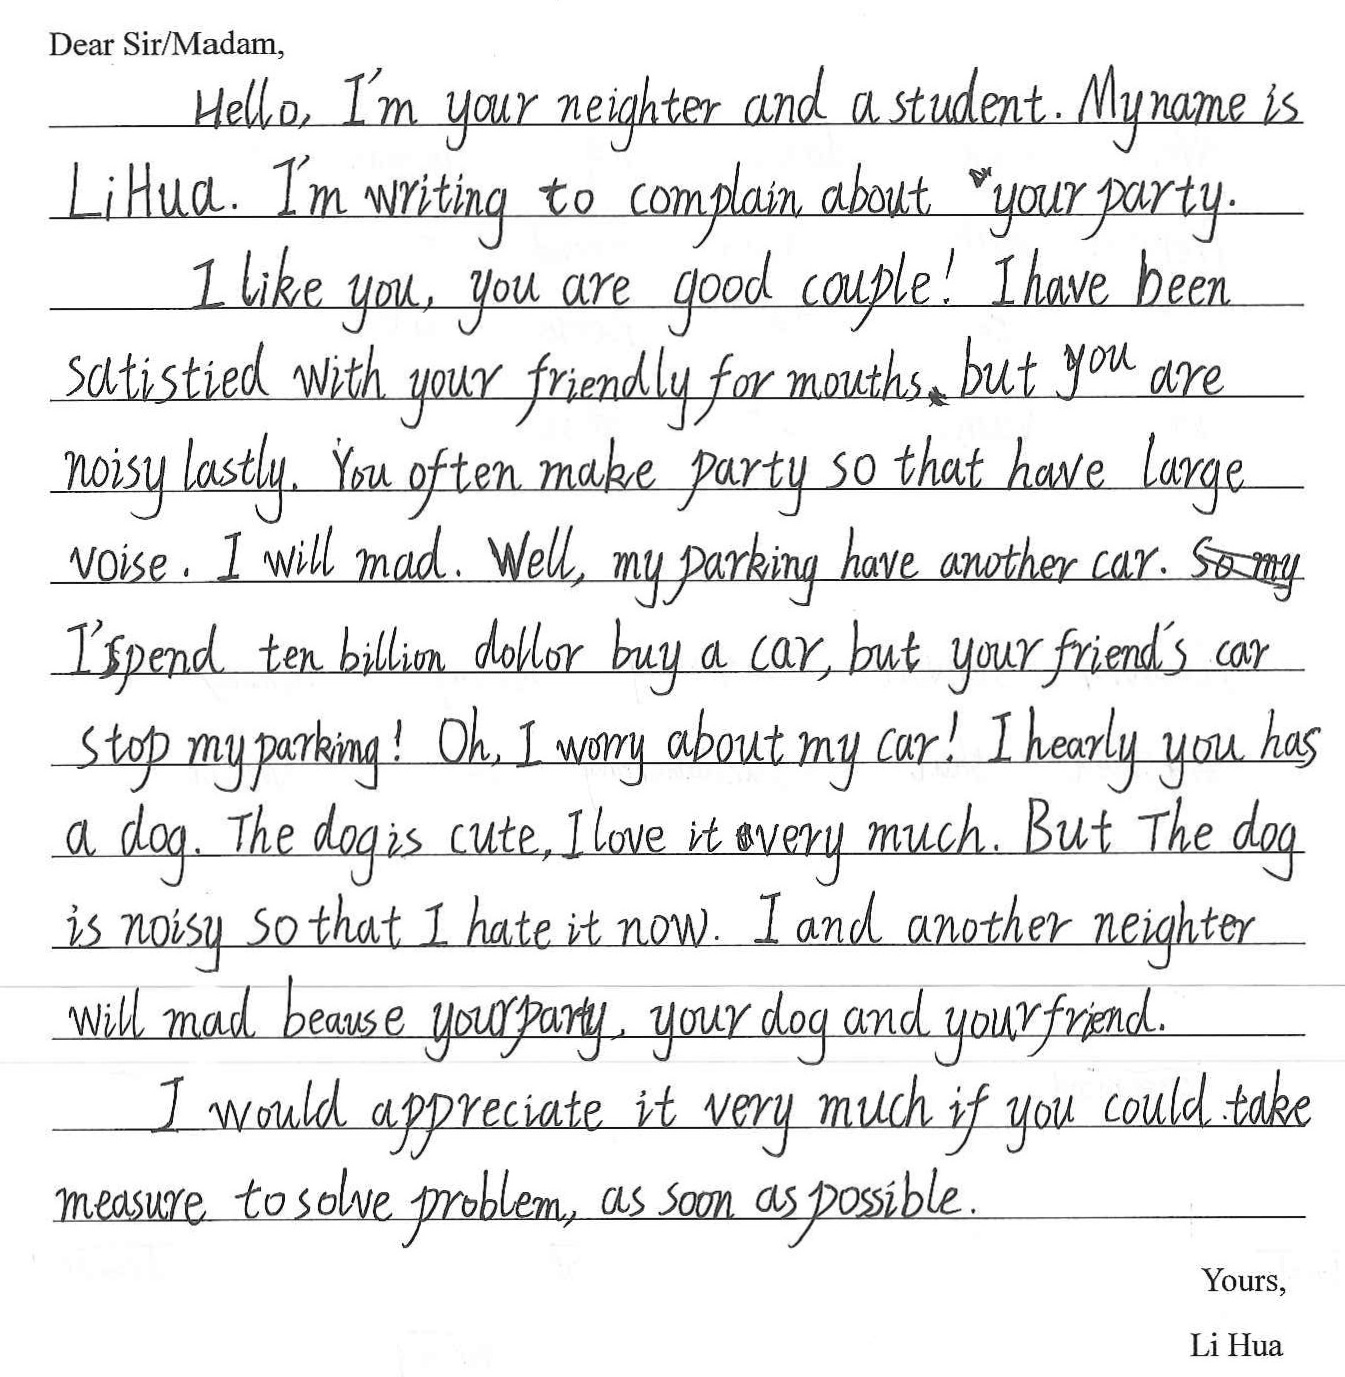 Dear Sir/Madam,
Hello, I'm your neighter and a student. My name is
Li Hua. I'm writing to complain about your party.
I like you, you are good couple! I have been
satistied with your friendly for mouths, but you are
noisy lastly. You often make party so that have large
voise. I will mad. Well, my parking have another car. So my
I'spend ten billion dollor buy a car, but your friend's car
stop my parking! Oh, I worry about my car! I hearly you has
a dog. The dog is cute, I love it very much. But The dog
is noisy so that I hate it now. I and another neighter
will mad beause your party, your dog and your friend.
I would appreciate it very much if you could take
measure to solve problem, as soon as possible.
Yours,
Li Hua